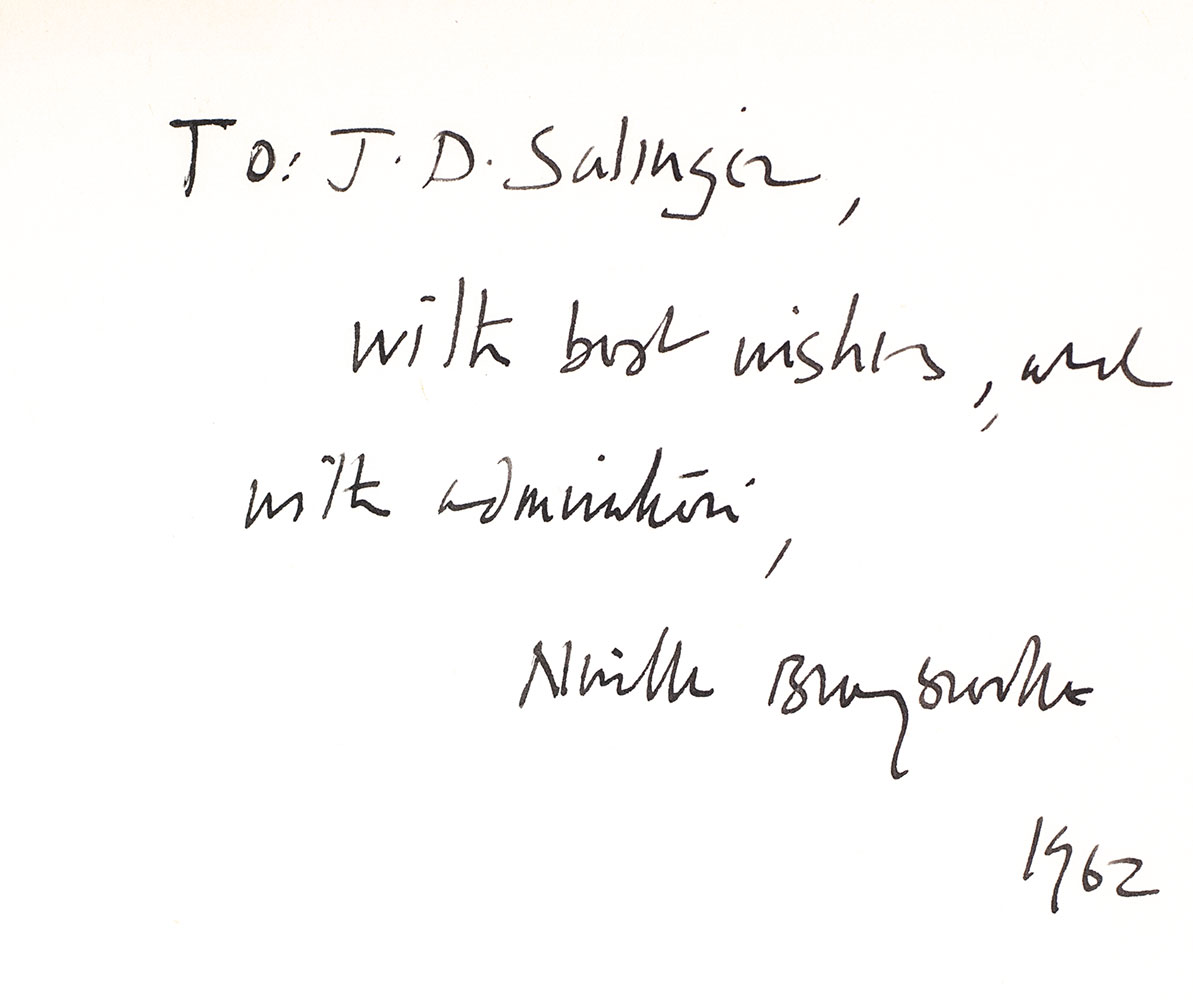 To: J. D. Salinger,
with best wishes, and
with admiration,
Neville Braybrooke
1962